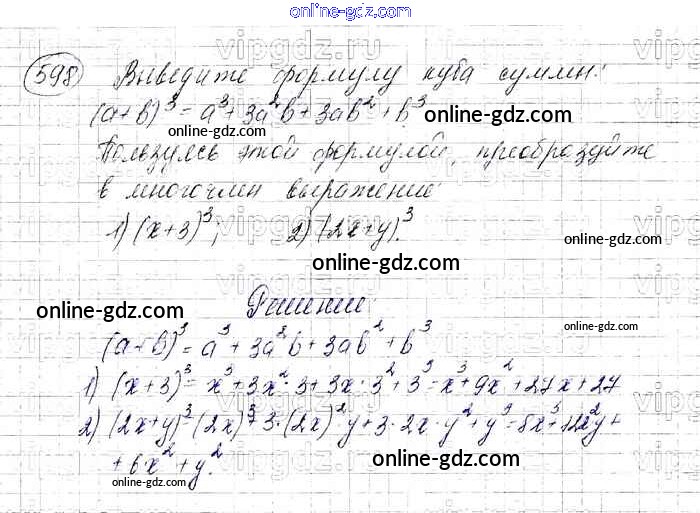 online-gdz.com
vipgdz.ru
598 Выведите формулу куба суммы:
(a+b)³ = a³ + 3a²b + 3ab² + b³
online-gdz.com
Пользуясь этой формулой, преобразуйте
в многочлен выражение
1) (x+3)³; 2) (2x+y)³.
online-gdz.com
Решение
online-gdz.com
(a+b)³ = a³ + 3a²b + 3ab² + b³
1) (x+3)³ = x³ + 3x²·3 + 3x·3² + 3³ = x³ + 9x² + 27x + 27
2) (2x+y)³ = (2x)³ + 3·(2x)²y + 3·2x·y² + y³ = 8x³ + 12x²y +
+ 6x² + y².
online-gdz.com